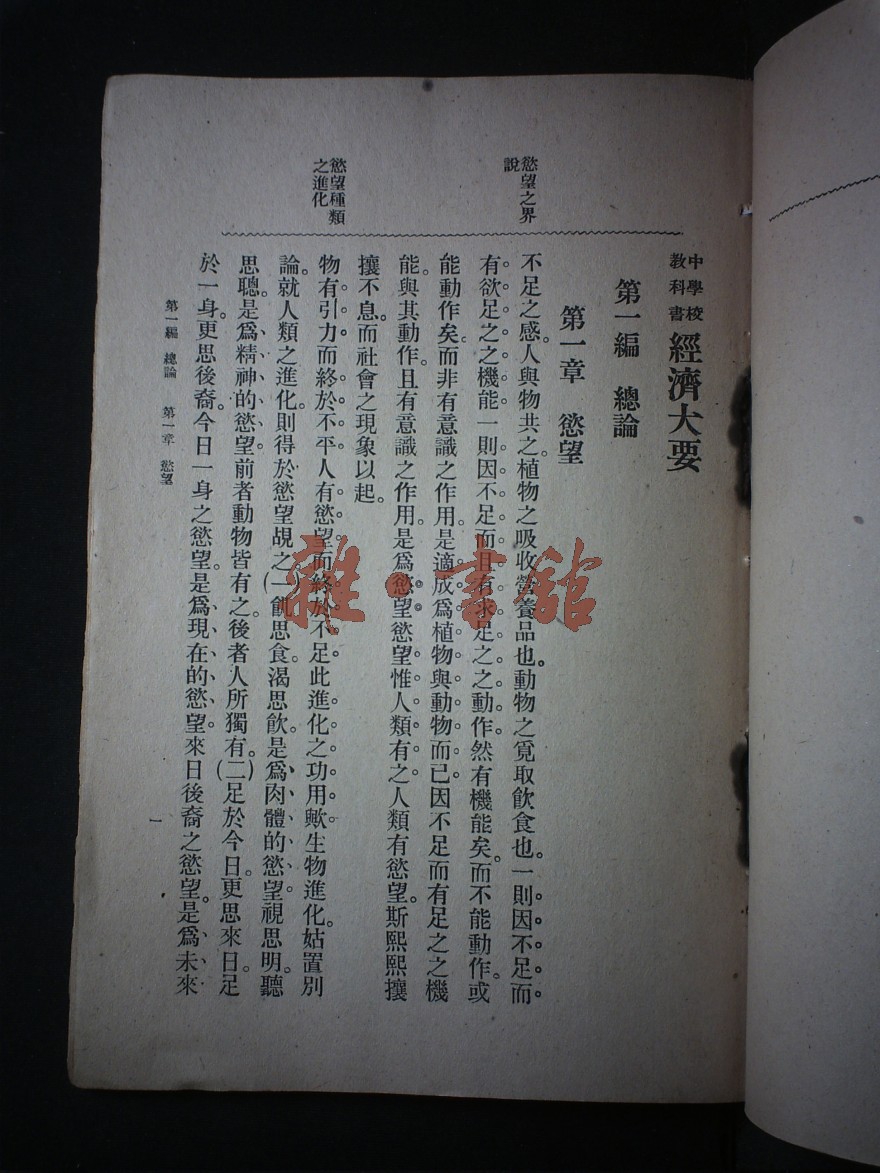 中學校
教科書
經濟大要
第一編　總論
第一章　慾望
慾望之界
說
不足之感。人與物共之。植物之吸收營養品也。動物之覓取飲食也。一則因不足而
有欲足之之機能一則因不足而且有求足之之動作。然有機能矣。而不能動作。或
能動作矣。而非有意識之作用。是適成爲植物與動物而已。因不足而有足之之機
能與其動作。且有意識之作用。是爲慾望。慾望惟人類有之。人類有慾望。斯熙熙攘
攘不息。而社會之現象以起。
慾望種類
之進化
物有引力而終於不平。人有慾望而終於不足。此進化之功用歟。生物進化。姑置別
論。就人類之進化。則得於慾望覘之。(一)飢思食。渴思飲。是爲肉體的慾望。視思明。聽
思聰。是爲精神的慾望。前者動物皆有之。後者人所獨有。(二)足於今日。更思來日。足
於一身。更思後裔。今日一身之慾望。是爲現在的慾望。來日後裔之慾望。是爲未來
第一編　總論　第一章　慾望
一
雜·書館